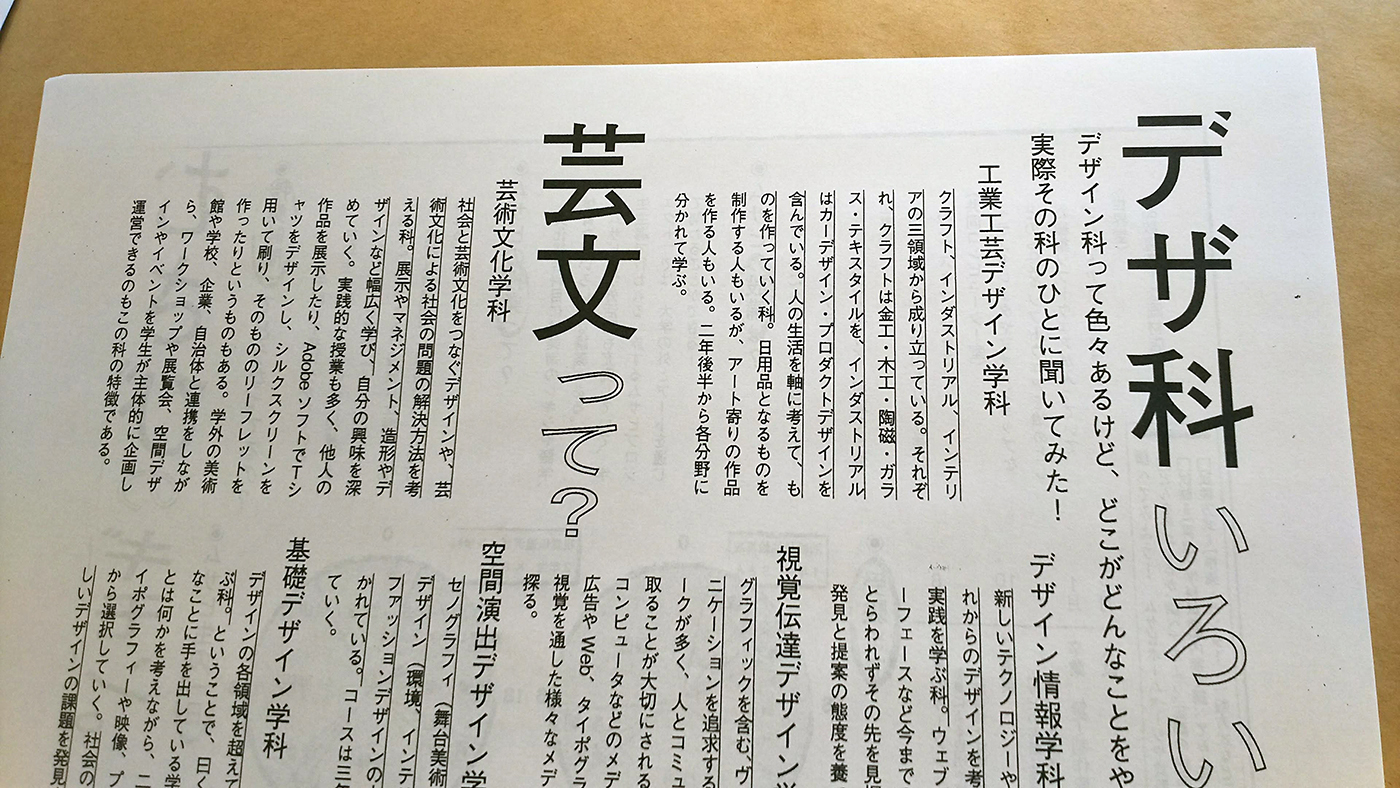 デザ科いろい
デザイン科って色々あるけど、どこがどんなことをや
実際その科のひとに聞いてみた！
工業工芸デザイン学科
クラフト、インダストリアル、インテリ
アの三領域から成り立っている。それぞ
れ、クラフトは金工・木工・陶磁・ガラ
ス・テキスタイルを、インダストリアル
はカーデザイン・プロダクトデザインを
含んでいる。人の生活を軸に考えて、も
のを作っていく科。日用品となるものを
制作する人もいるが、アート寄りの作品
を作る人もいる。二年後半から各分野に
分かれて学ぶ。
デザイン情報学科
新しいテクノロジーや
れからのデザインを考
実践を学ぶ科。ウェブ
ーフェースなど今まで
とらわれずその先を見据
発見と提案の態度を養
視覚伝達デザイン学
グラフィックを含む、ヴ
ニケーションを追求する
ークが多く、人とコミュ
取ることが大切にされる
コンピュータなどのメデ
広告や Web、タイポグラ
視覚を通した様々なメデ
探る。
芸文って？
芸術文化学科
社会と芸術文化をつなぐデザインや、芸
術文化による社会の問題の解決方法を考
える科。展示やマネジメント、造形やデ
ザインなど幅広く学び、自分の興味を深
めていく。実践的な授業も多く、他人の
作品を展示したり、Adobe ソフトでTシ
ャツをデザインし、シルクスクリーンを
用いて刷り、そのもののリーフレットを
作ったりというものもある。学外の美術
館や学校、企業、自治体と連携をしなが
ら、ワークショップや展覧会、空間デザ
インやイベントを学生が主体的に企画し
運営できるのもこの科の特徴である。
空間演出デザイン学
セノグラフィ（舞台美術
デザイン（環境、インテ
ファッションデザインの
かれている。コースは三年
ていく。
基礎デザイン学科
デザインの各領域を超えて
ぶ科。ということで、日く
なことに手を出している学
とは何かを考えながら、二
イポグラフィーや映像、プ
から選択していく。社会の
しいデザインの課題を発見